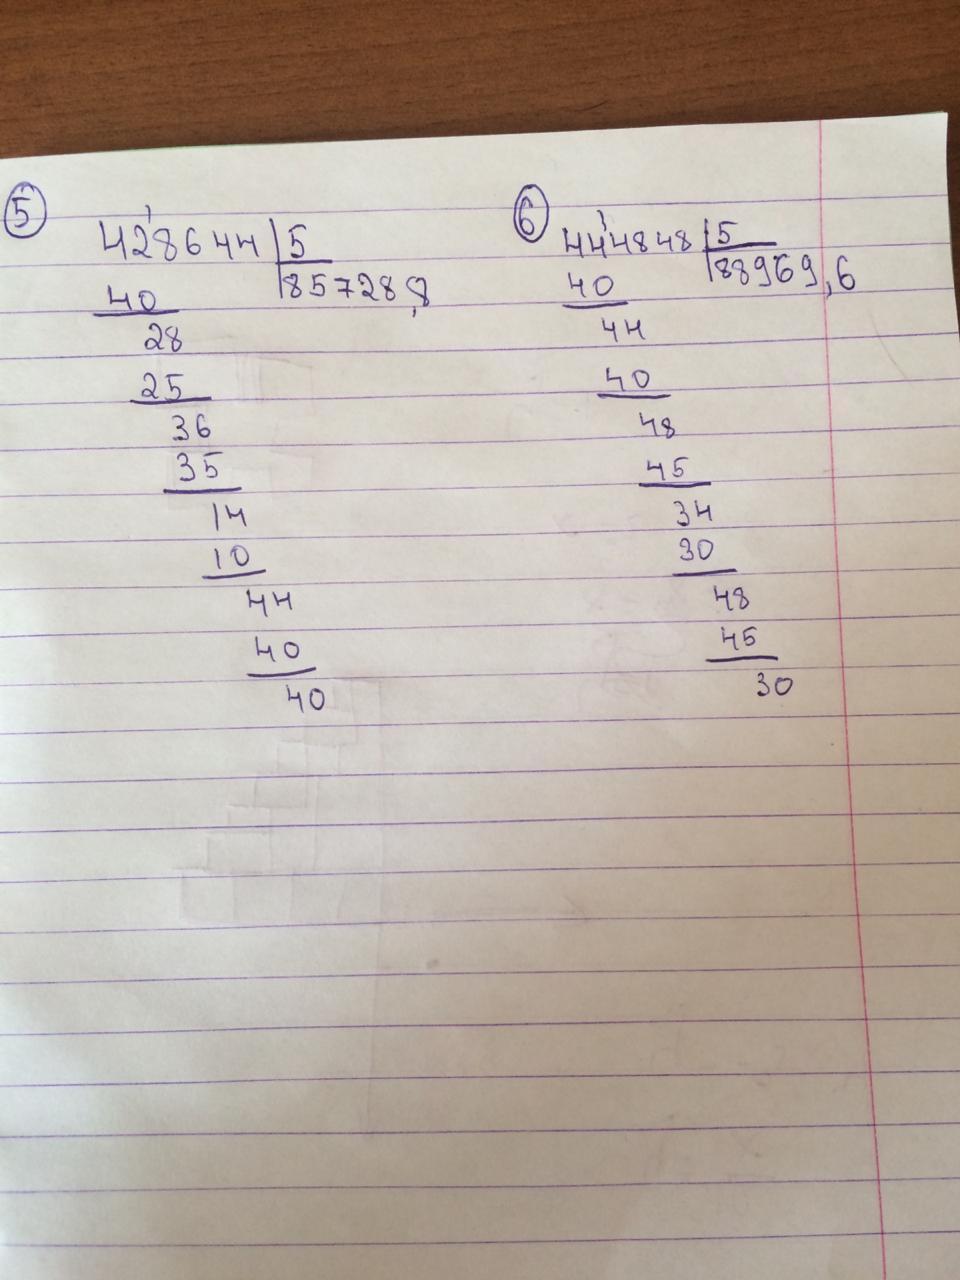 5
428644 5
857288,8
40
28
25
36
35
14
10
44
40
40
6
444848 5
88969,6
40
44
40
48
45
34
30
48
45
30